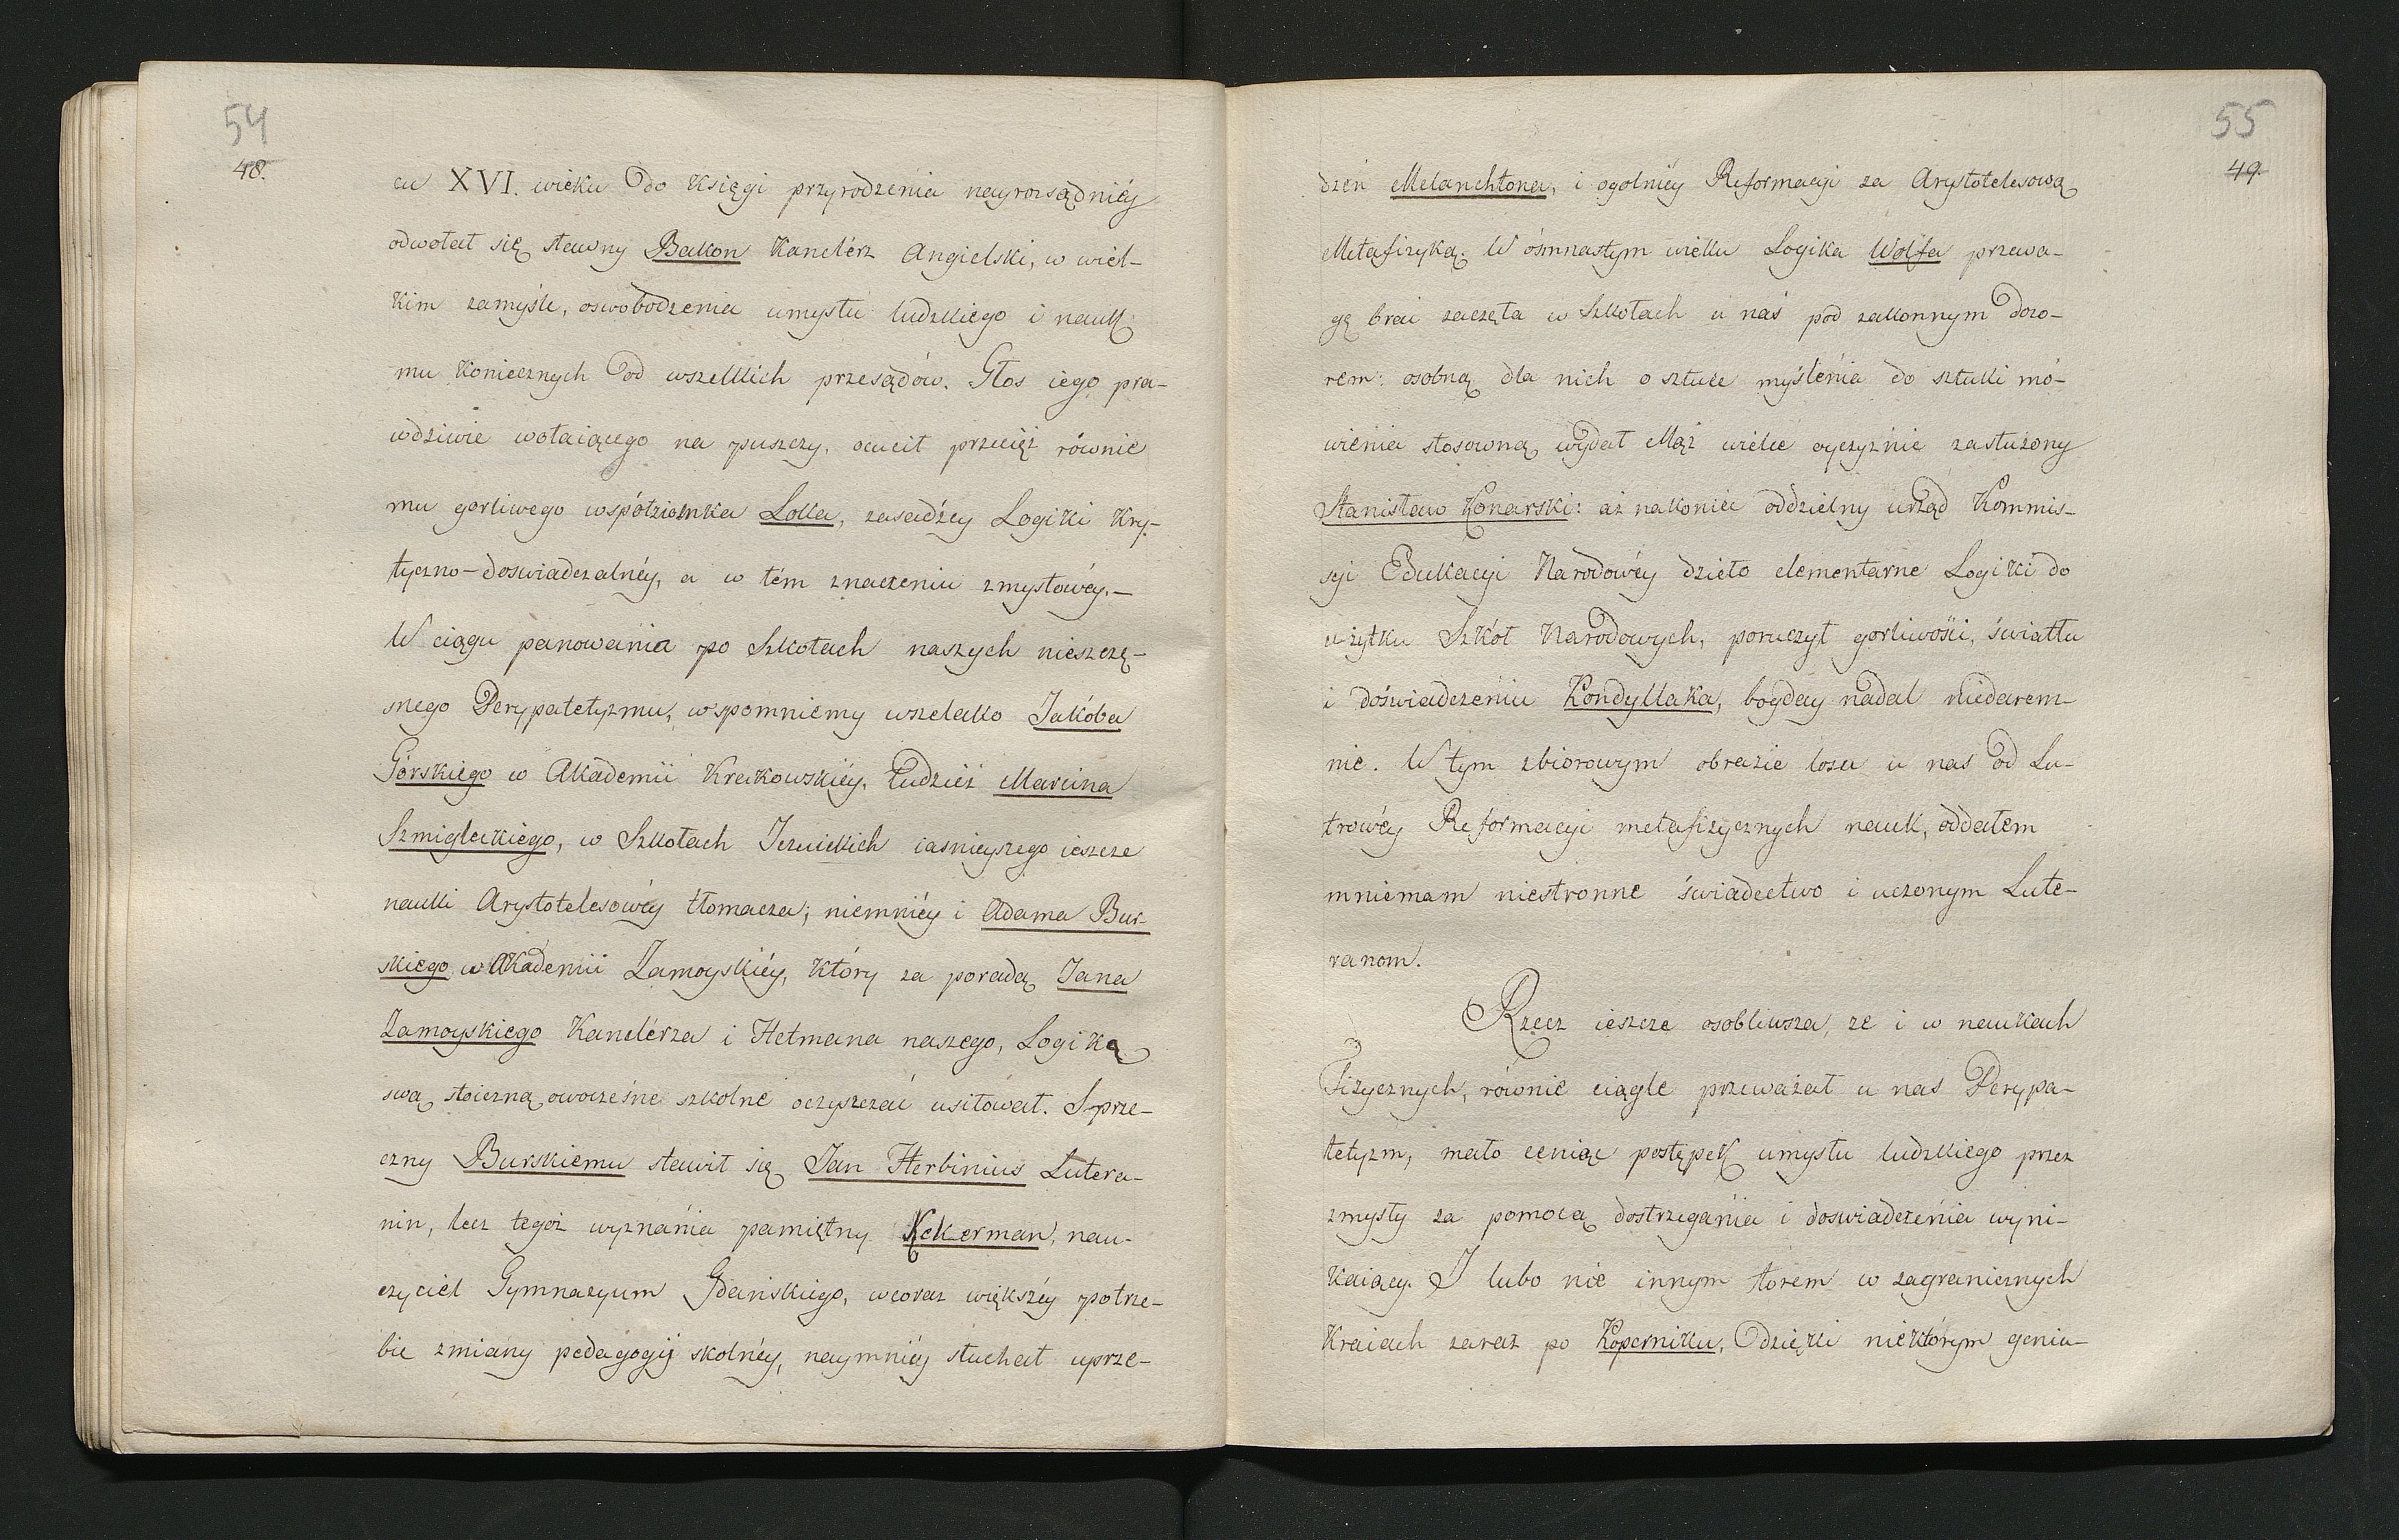 54
48.
cu XVI. wieku do Księgi przyrodzenia nayrozsądniéy
odwołał się sławny Bakon Kanclérz Angielski, w wiel-
kim zamyśle, oswobodzenia umysłu ludzkiego i nauk
mu koniecznych od wszelkich przesądów. Głos iego pra-
wdziwie wołaiącego na puszczy, ocucił przecięż równie
mu gorliwego współziomka Loka, zasadźcy Logiki Kry-
tyczno-doswiadczalnéy, a w tém znaczeniu zmysłowéy.—
W ciągu panowania po Szkołach naszych nieszczę-
snego Perypatetyzmu, wspomniemy wszelako Jakóba
Górskiego w Akademii Krakowskiéy, tudzież Marcina
Szmigleckiego, w Szkołach Jezuickich iasnieyszego ieszcze
nauki Arystotelesowéy tłomacza; niemniéy i Adama Bur-
skiego w Akademii Zamoyskiéy, który za poradą Jana
Zamoyskiego Kanclérza i Hetmana naszego, Logiką
swą stoiczną owoczesne szkolné oczyszczać usiłował. Sprze-
czny Burskiemu stawił się Jan Herbinius Lutera-
nin, lecz tegoż wyznánia pamiętny Kekerman, nau-
czyciel Gymnazyum Gdańskiego, wcoraz większéy potrze-
bie zmiany pedagogij skolnéy, naymniéy słuchał uprze-
55
49.
dzeń Melanchtona, i ogolniéy Reformacyi za Arystotelesową
Metafizyką. W ósmnastym wieku Logika Wolfa przewa-
gę brać zaczęła w Szkołach u nas pod zakonnym dozo-
rem: osobną dla nich o sztuce myślénia do sztuki mó-
wienia stosowną, wydał Mąż wielce oyczyznie zasłużony
Stanisław Konarski: aż nakoniec oddzielny urząd Kommis-
syi Edukacyi Narodowéy dzieło elementarne Logiki do
użytku Szkół Narodowych, poruczył gorliwości, światłu
i doświadczeniu Kondyllaka, bogday nadal niedarem-
nie. W tym zbiorowym obrazie losu u nas od Lu-
trowéy Reformacyi metafizycznych nauk, oddałem
mniemam niestronne świadectwo i uczonym Lute-
ranom.
Rzecz ieszcze osobliwsza, że i w naukach
Fizycznych, równie ciągle przeważał u nas Perypa-
tetyzm, mało ceniąc postępek umysłu ludzkiego przez
zmysły za pomocą dostrzegánia i doswiadczénia wyni-
kaiący. I lubo nie innym torem w zagranicznych
Kraiach zaraz po Koperniku, Dzięki niektórym geniu-